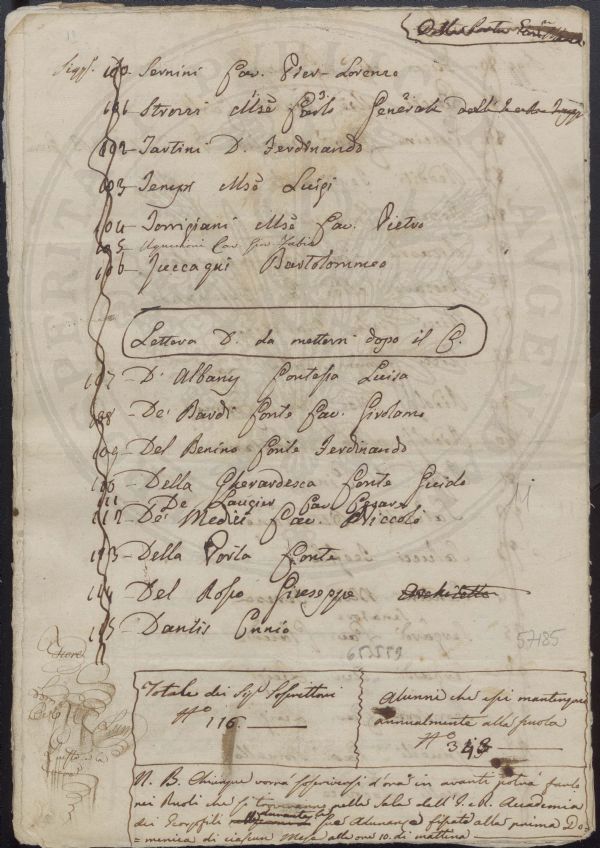 Sigg.ri 100 Sernini Cav. Pier-Lorenzo
101 Strozzi Mse Carlo Generale
102 Tartini D. Ferdinando
103 Tempi Mse Luigi
104 Torrigiani Mse Cav. Pietro
105 Uguccioni Cav. Gio. Fabio
106 Zuccagni Bartolommeo
Lettera D. da mettersi dopo il C.
107 D' Albany Contessa Luisa
108 De' Bardi Conte Cav. Girolamo
109 Del Benino Conte Ferdinando
110 Della Gherardesca Conte Guido
111 De Laugier Cav. Cesare
112 De' Medici Cav. Niccolò
113 Della Porta Conte
114 Del Rosso Giuseppe Architetto
115 Dantis Ennio
57185
Totale dei Sigg.ri Soscrittori
N.o 116.
Alunni che essi mantengono
annualmente alla scuola
N.o 348
N. B. Chiunque vorrà soscriversi d'ora in avanti potrà farlo
nei Ruoli che si troveranno nelle Sale dell' I. e R. Accademia
dei Georgofili durante le sue Adunanze fissate alla prima Do=
=menica di ciascun Mese alle ore 10. di mattina